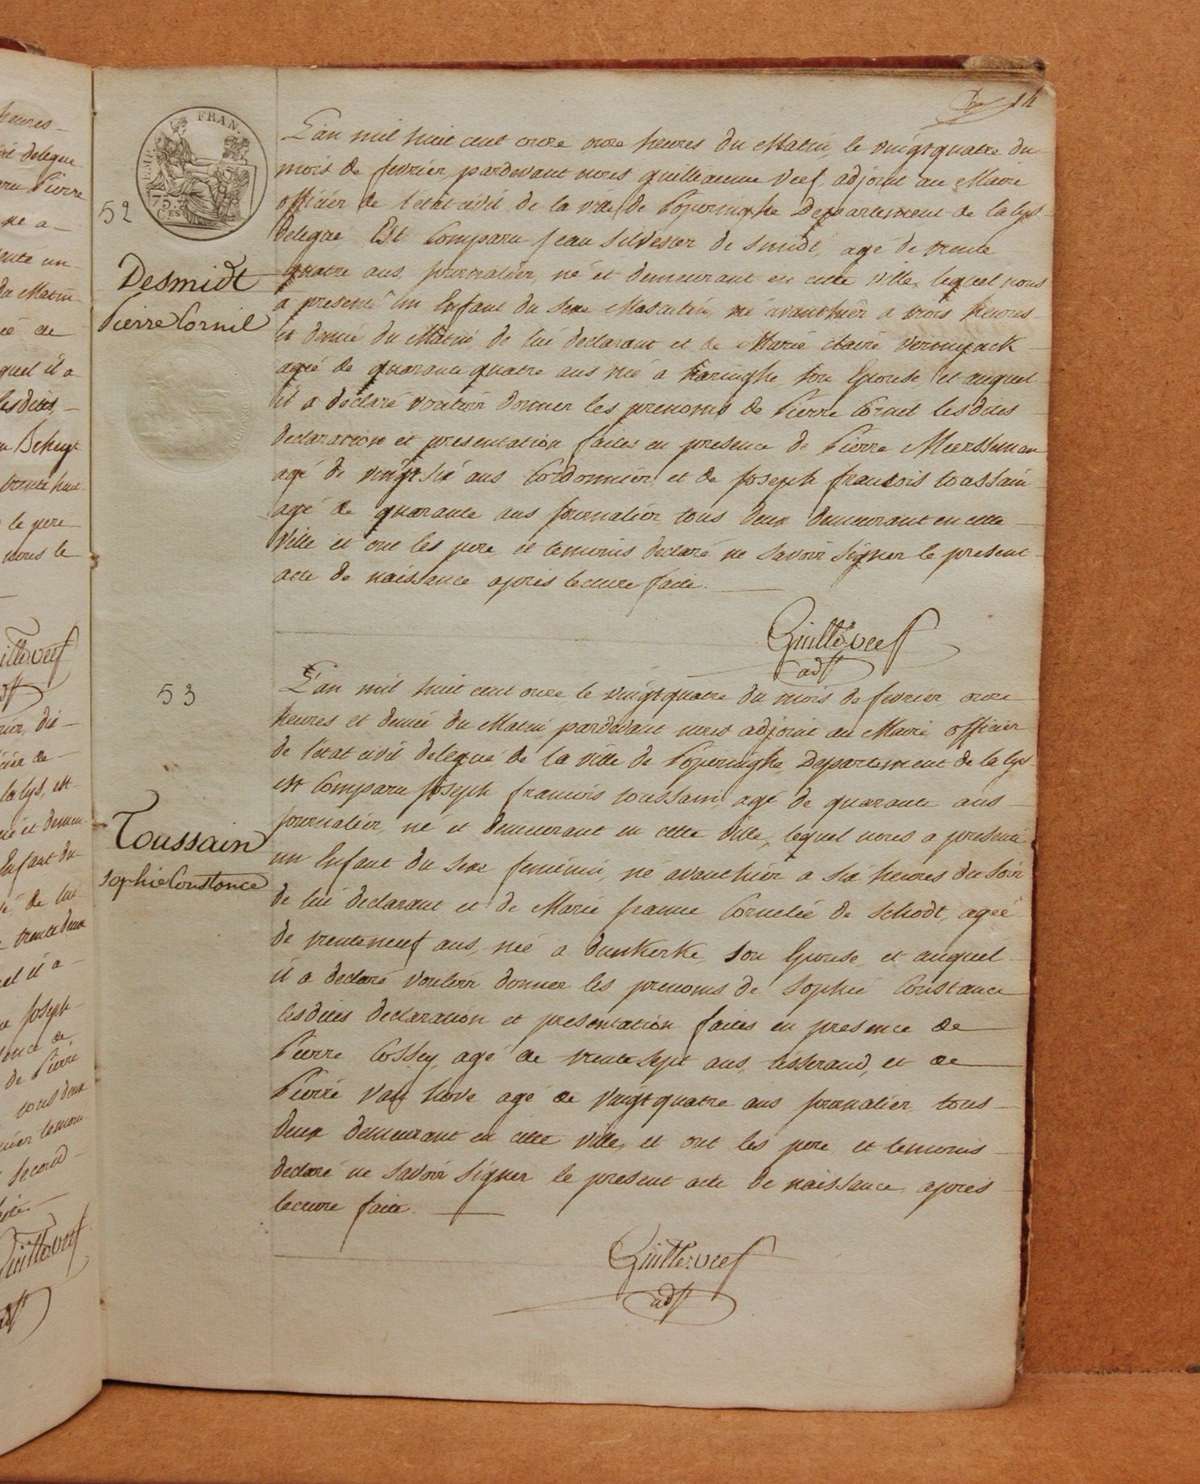 14
EMP. FRAN.
75 C.es
52
Desmidt
Pierre Cornil
L'an mil huit cent onze onze heures du Matin, le vingtquatre du
mois de fevrier, pardevant nous guillaeume Veef, adjoint au Maire
officier de l'état civil de la ville de Poperinghe Departement de la lys
delegué Est Comparu Jean Silvester de Smidt, agé de trente
quatre ans, journalier, né et demeurant en cette ville, lequel nous
a presenté un Enfant du sexe Masculin, né avanthier a trois heures
et demie du Matin, de lui declarant et de Marie Claire
agée de quarante quatre ans née a haringhe son Epouse, et auquel
il a declaré vouloir donner les prenoms de Pierre Cornil lesdites
declaration et presentation faites en presence de Pierre Meersseman
agé de vingt six ans Cordonnier et de Joseph francois toussain
agé de quarante ans journalier tous deux demeurant en cette
Ville et ont les pere et temoins declaré ne savoir signer le present
acte de naissance après lecture faite.
Guille. Veef
adjt
53
Toussain
Sophie Constance
L'an mil huit cent onze le vingtquatre du mois de fevrier, onze
heures et demie du Matin pardevant nous adjoint au Maire officier
de l'etat civil delegué de la ville de Poperinghe, Departement de la lys
est Comparu Joseph francois toussain, agé de quarante ans
journalier, né et demeurant en cette ville, lequel nous a presenté
un Enfant du sexe feminin, né avanthier a six heures du soir
de lui declarant et de Marie franne Cornelie de Schodt, agée
de trenteneuf ans, née a dunkerke, son Epouse, et auquel
il a declaré vouloir donner les prenoms de Sophie Constance
lesdites declaration et presentation faites en presence de
Pierre Cossey, agé de trente sept ans, tisserand, et de
Pierre Van hove agé de vingtquatre ans journalier tous
deux demeurant en cette ville, et ont les pere et temoins
declaré ne savoir signer le present acte de naissance après
lecture faite.
Guille. Veef
adjt